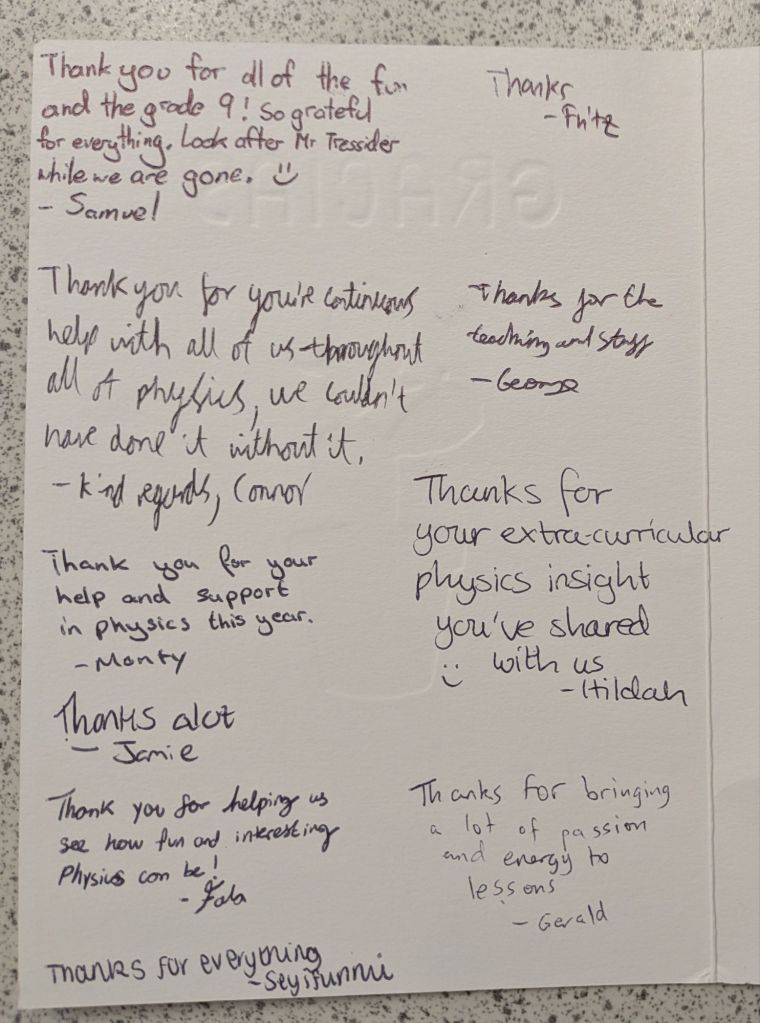 Thank you for all of the fun
and the grade 9! So grateful
for everything. Look after Mr Tressider
while we are gone. :)
- Samuel
Thanks
- Fritz
GRACIAS
Thank you for you're continuous
help with all of us throughout
all of physics, we couldn't
have done it without it.
- kind regards, Connor
Thanks for the
teaching and stuff
- George
Thank you for your
help and support
in physics this year.
- Monty
Thanks for
your extra-curricular
physics insight
you've shared
:) with us
- Hildah
Thanks alot
- Jamie
Thank you for helping us
see how fun and interesting
Physics can be!
Thanks for bringing
a lot of passion
and energy to
lessons
- Gerald
Thanks for everything